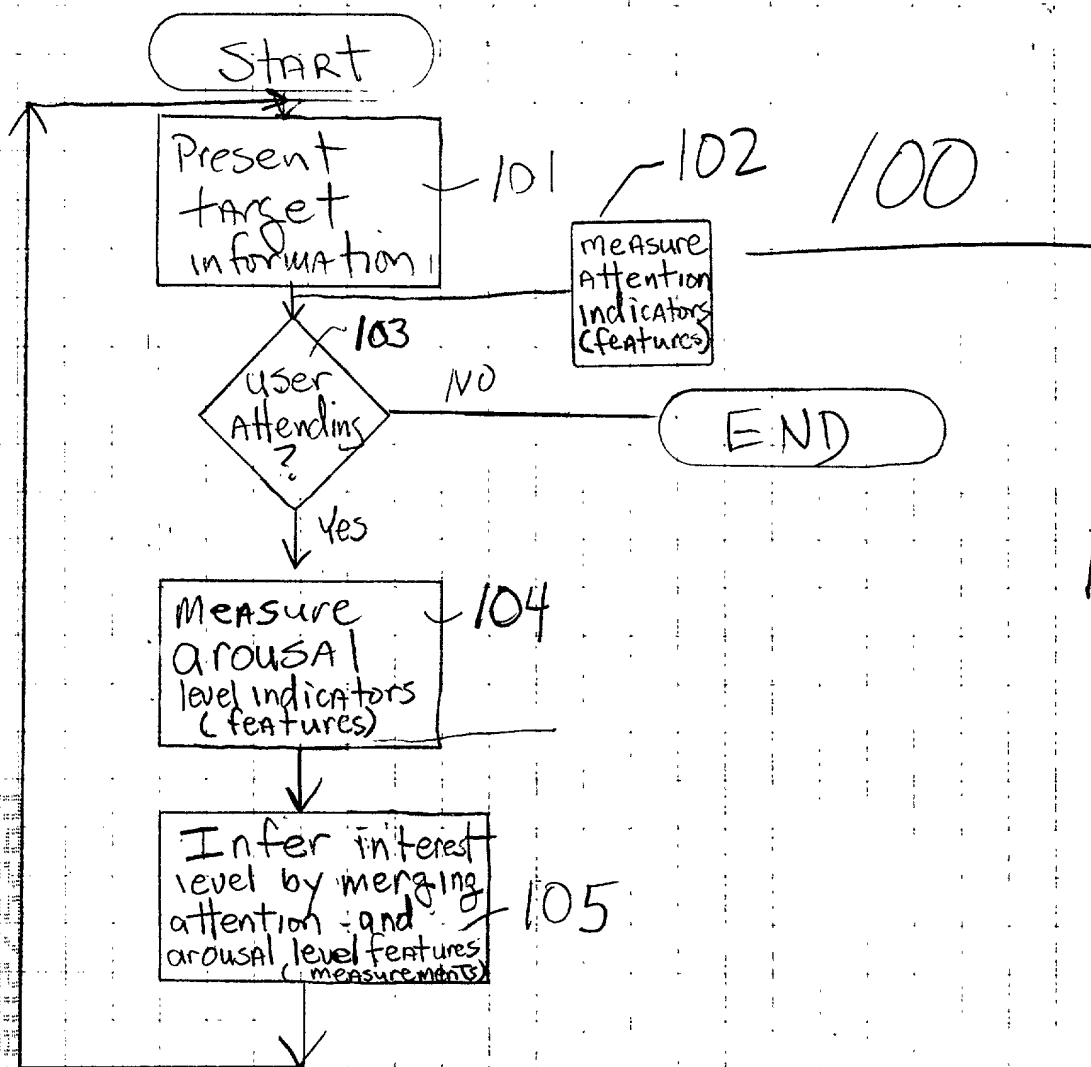 START
Present
target
information
101
102
100
measure
Attention
indicators
(features)
103
user
Attending
?
NO
END
Yes
Measure
arousal
level indicators
(features)
104
Infer interest
level by merging
attention and
arousal level features
(measurements)
105